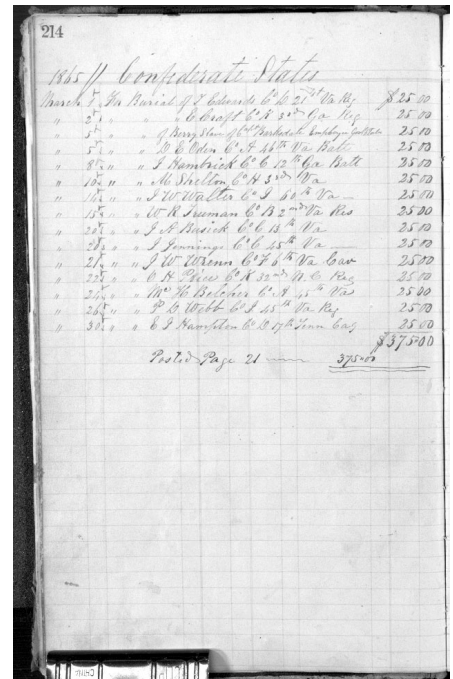 214
1865 // Confederate States
March 1st For Burial of J Edwards Co D 21st Va Reg $25.00
" 2d " " " C Craft Co K 3rd Ga Reg 25.00
" 5th " " of Berry Slave of Barksdale Employ 25.00
" 5th " " D E Oden Co A 46th Va Batt 25.00
" 8th " " J Hambrick Co C 12th Ga Batt 25.00
" 10th " " M Shelton Co H 3rd Va 25.00
" 14th " " J W Walter Co I 60th Va 25.00
" 15th " " W R Truman Co B 2nd Va Res 25.00
" 20th " " J A Busick Co C 13th Va 25.00
" 20th " " J Jennings Co C 45th Va 25.00
" 21st " " J W Wrenn Co F 6th Va Cav 25.00
" 22d " " C H Price Co K 32nd N.C Reg 25.00
" 24th " " H Belcher Co A 45th Va 25.00
" 26th " " P D Webb Co I 45th Va Reg 25.00
" 30th " " E J Hampton Co D 17th Tenn 25.00
$375.00
Posted Page 21 375.00